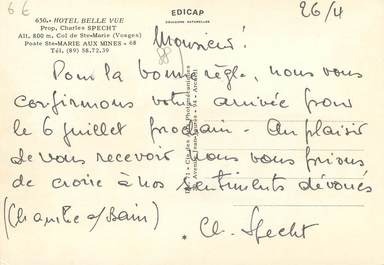 66
650. - HOTEL BELLE VUE
Prop. Charles SPECHT
Alt. 800 m, Col de Ste-Marie (Vosges)
Poste Ste-MARIE AUX MINES - 68
Tél. (89) 58.72.39
EDICAP
COULEURS NATURELLES
26/4
Monsieur!
Pour la bonne règle, nous vous
confirmons votre arrivée pour
le 6 juillet prochain - Au plaisir
de vous recevoir nous vous prions
de croire à nos sentiments dévoués
(Chambre s/ Bain)
Ch. Specht